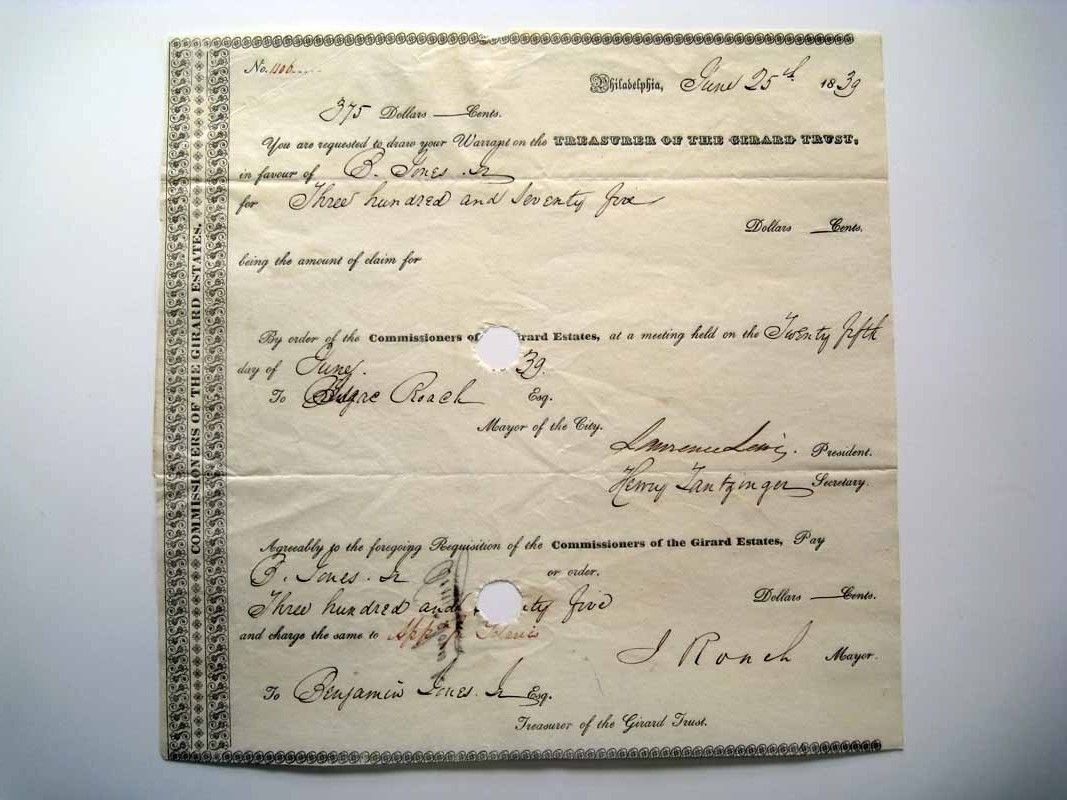 COMMISSIONERS OF THE GIRARD ESTATES.
No. 1106
Philadelphia, June 25th 1839
375 Dollars — Cents.
You are requested to draw your Warrant on the TREASURER OF THE GIRARD TRUST,
in favour of B. Jones Jr
for Three hundred and Seventy five
Dollars — Cents.
being the amount of claim for
By order of the Commissioners of Girard Estates, at a meeting held on the Twenty fifth
day of June 39.
To Roach Esq.
Mayor of the City.
Lawrence Lewis. President.
Henry Secretary.
Agreeably to the foregoing Requisition of the Commissioners of the Girard Estates, Pay
B. Jones. Jr or order.
Three hundred and ty five Dollars — Cents.
and charge the same to
J Roach Mayor.
To Benjamin Jones. Jr Esq.
Treasurer of the Girard Trust.